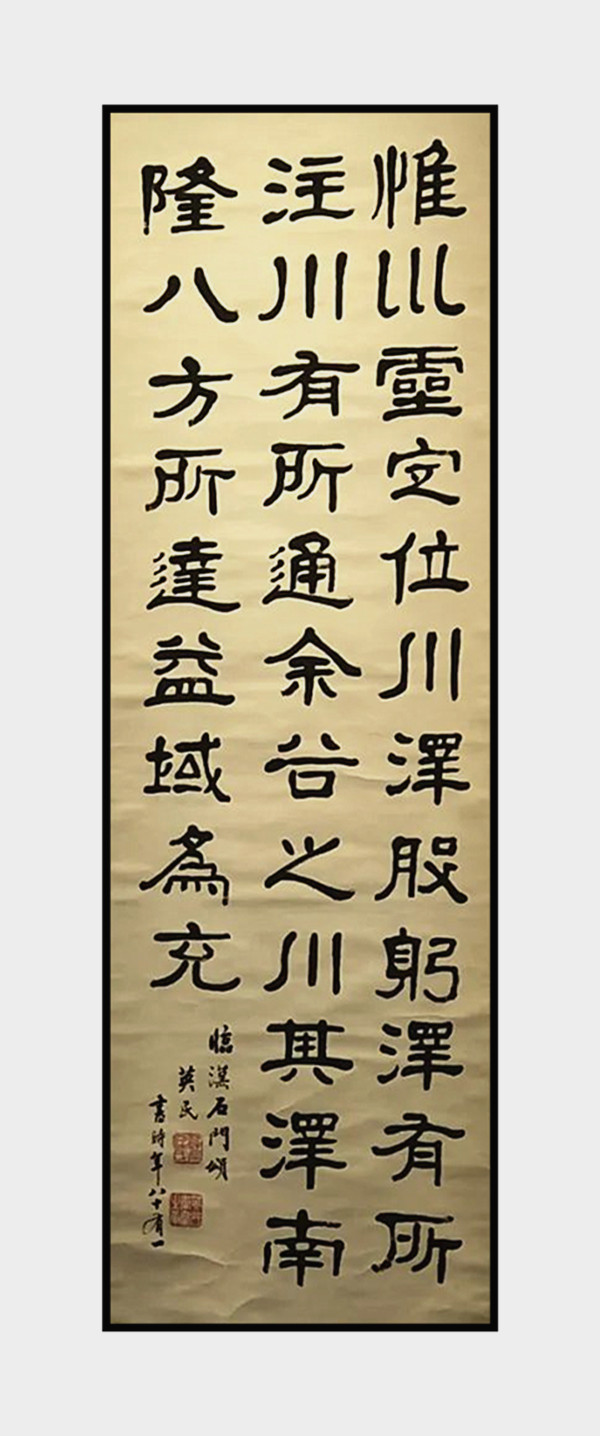 惟巛靈定位川澤股躬澤有所
注川有所通余谷之川其澤南
隆八方所達益域為充
臨漢石門頌
英民
書時年八十有一